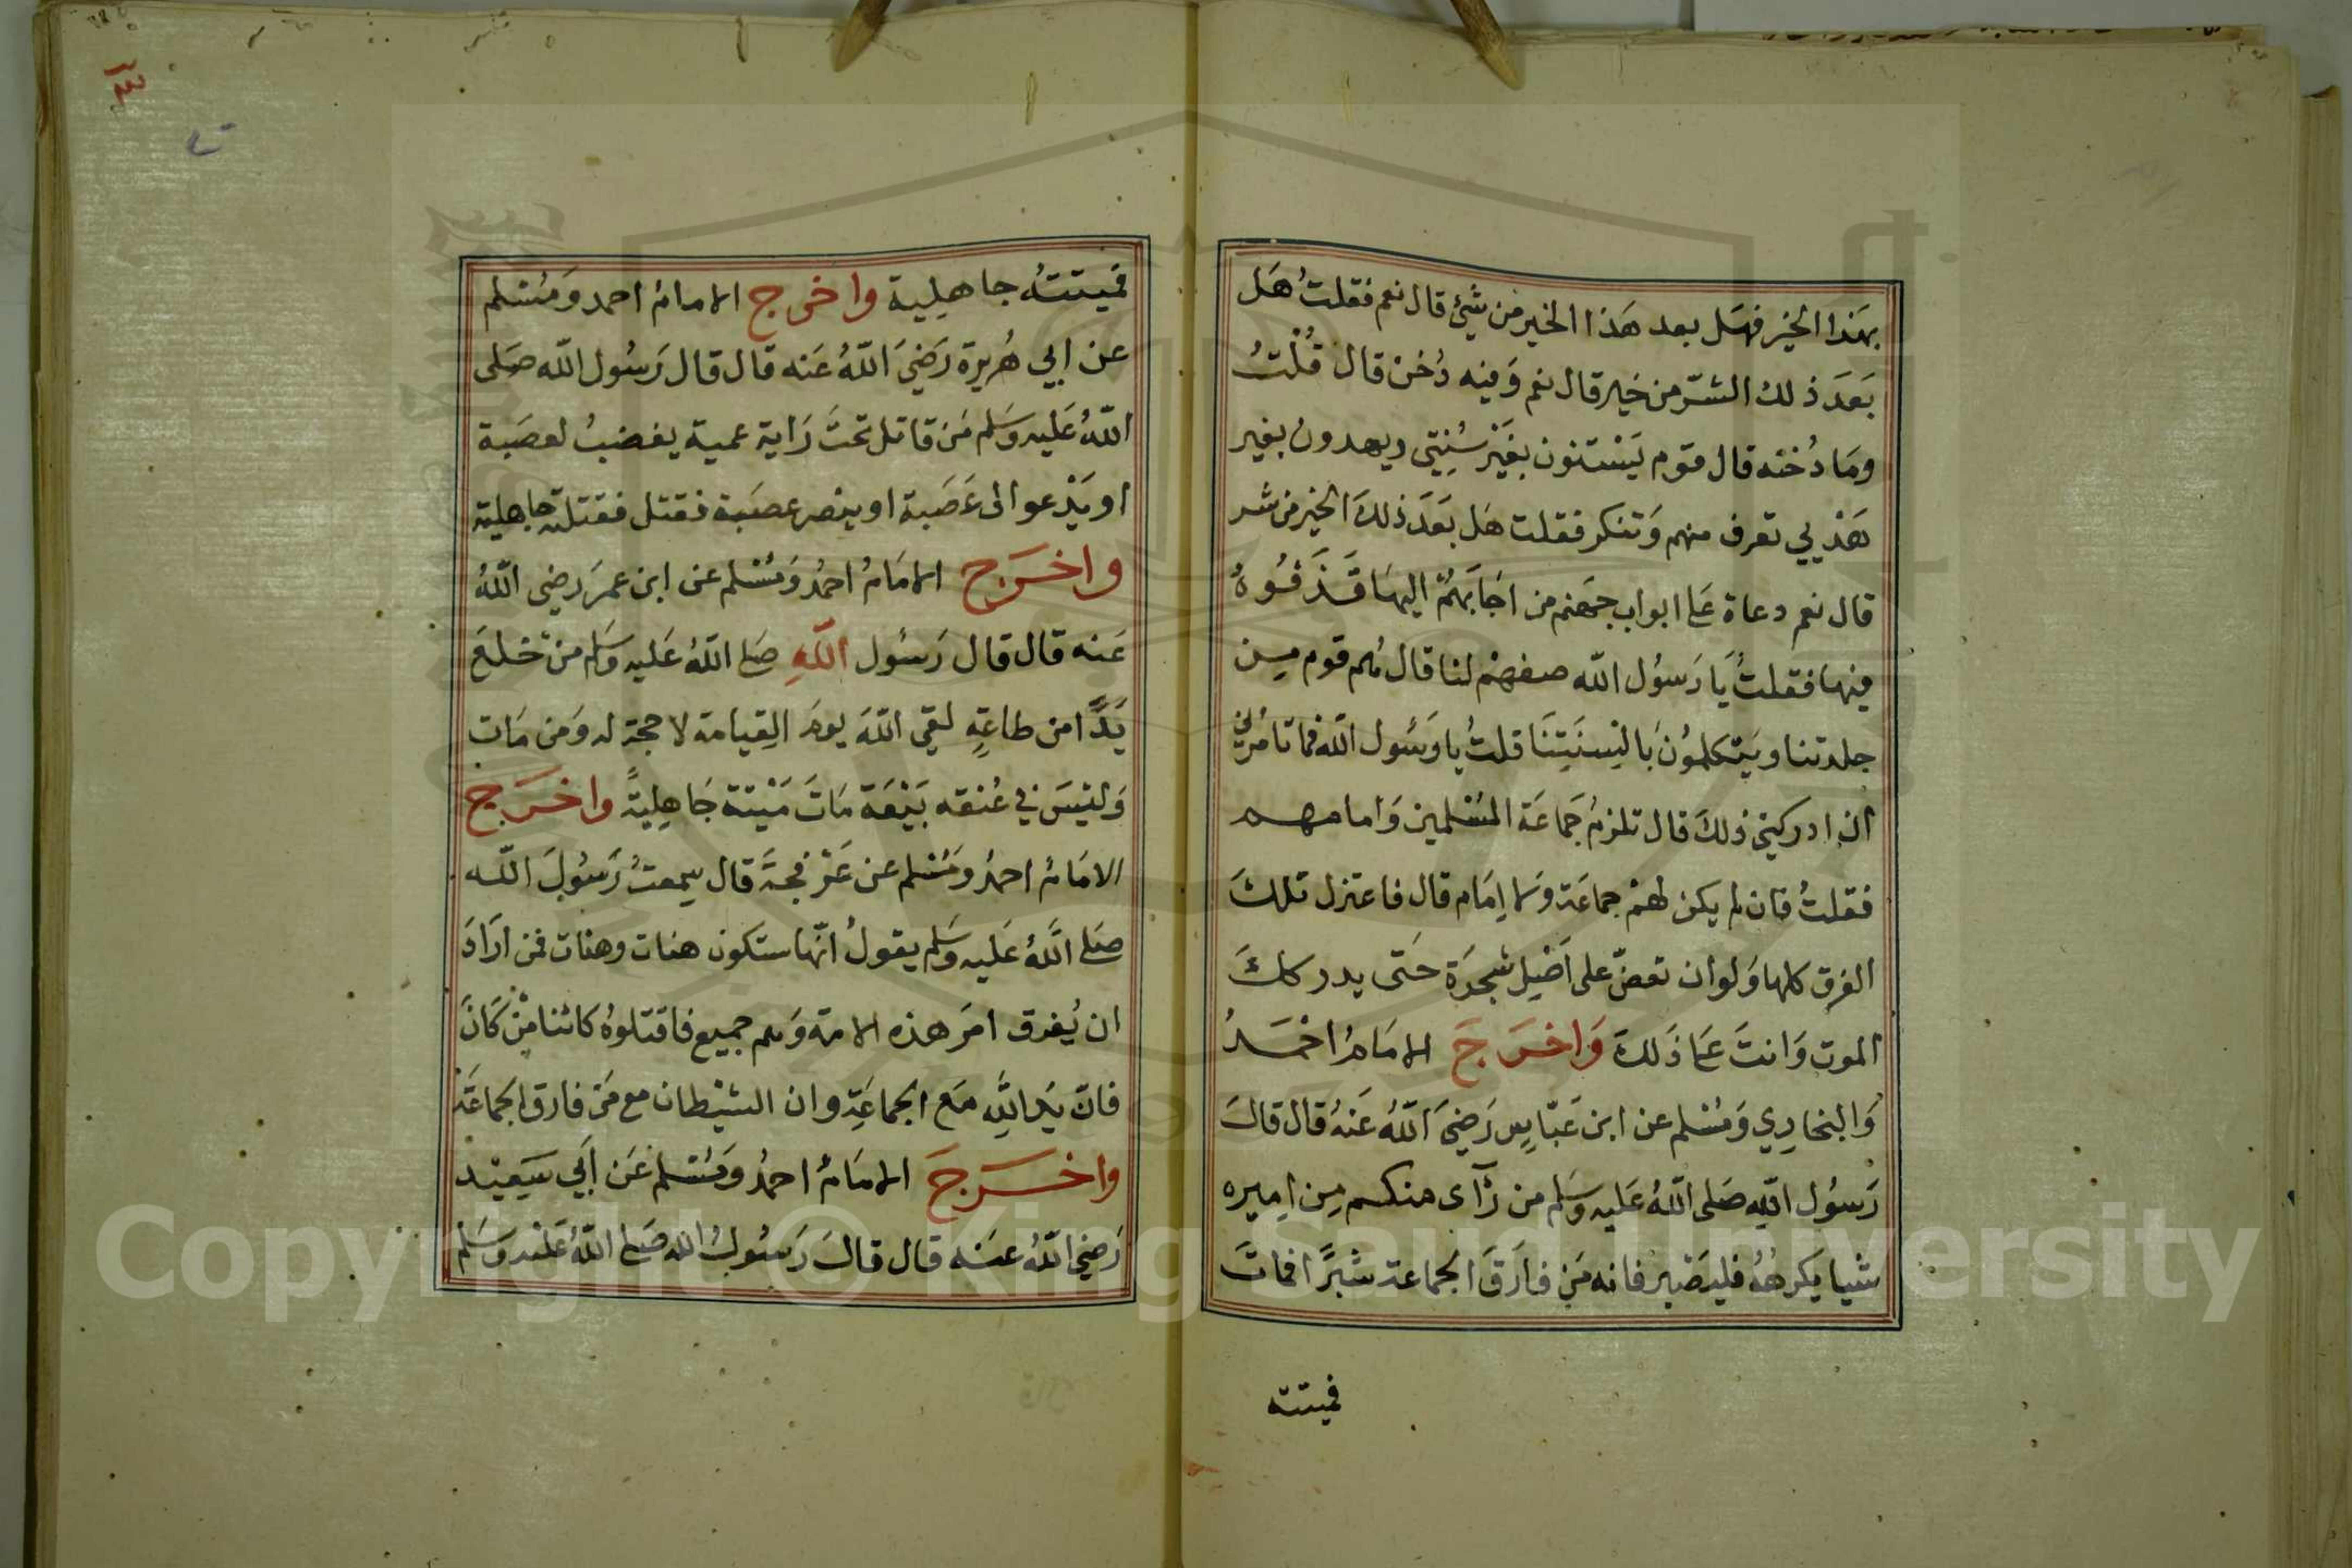 بهَذا الخير فهَل بعد هَذا الخير من شيئ قال نعم فقلتُ هَل
بَعَدَ ذلك الشرّ من خير قال نعم وَفيه دُخن قال قُلْتُ
ومَا دُخنه قال قوم يَسْتنون بغَيْر سُنِتِي ويهدون بغير
هَدْيي تعرف منهم وَتنكر فقلت هَل بَعَدَ ذلكَ الخير من شر
قال نعم دعاة عَلى ابواب جهَنم من اجَابَهُمْ اليهَا قَذَفُوهُ
فيهَا فقلتُ يَا رَسُول الله صفهمْ لنا قال هُم قوم مِن
جلدتنا ويَتكلمُونَ بَالسِنَتِنَا قلتُ يا رَسُول الله فما تامُرُني
ان ادركني ذلكَ قال تلزمُ جَماعَة المسْلمين وَامامهم
فقلتُ فان لم يكن لهُمْ جماعَة وَلا اِمَام قال فاعتزل تلكَ
الفرق كلها وَلو ان تعضّ على اَصْلِ شجَرَة حَتى يدركك
الموت وَانتَ عَلى ذَلكَ وَاخرَجَ الامَامُ احْمَدُ
وَالبخارِي وَمُسْلم عن ابن عَبّاسٍ رَضيَ اللهُ عَنهُ قال قالَ
رَسُول اللهِ صَلى اللهُ عَليه وسَلم من رَآى منكم مِن امِيره
شيا يَكرهُهُ فليَصْبِر فانه مَنِ فارَقَ الجماعَة شبرًا فماتَ
فميتته
فميتتهُ جاهِلِية واخرج الامامُ احمد وَمُسْلم
عن ابي هُريرة رَضيَ اللهُ عَنه قال قال رَسُول الله صَلى
اللهُ عَليه وسَلم مَن قاتل تحتَ رَاية عمية يغضبُ لعصَبة
او يَدْعو الى عَصَبة او ينصر عصَبة فقتل فقتلة جاهلية
واخرَج الامَامُ احمدُ وَمُسْلم عن ابن عمرَ رضي اللهُ
عَنه قال قال رَسُول اللهِ صَلى اللهُ عَليه وسَلم منْ خلعَ
يَدًا من طاعَةٍ لقي اللهَ يومَ القِيامة لا حجة له وَمَن مَات
وَليْسَ في عُنقه بَيْعَة مَاتَ مَيْتة جَاهِليةً واخرَج
الامَامُ احمدُ وَمُسْلم عن عَرْفجَة قال سِمعتُ رَسُولَ الله
صَلى اللهُ عَليه وسَلم يقولُ انّها ستكون هنات وهنات فمن ارَادَ
ان يُفرق امرَ هذه الامة وَهم جميع فاقتلوهُ كائنا مَنْ كَانَ
فانّ يَد اللهِ مَع الجماعَةِ وان الشيْطان مع مَن فارق الجَماعَة
واخرَجَ الامَامُ احمدُ وَمُسْلم عَن اَبي سَعِيْد
رَضِي اللهُ عَنه قال قالَ رَسُولُ الله صَلى اللهُ عَليْه وسَلم
Copyright © King Saud University